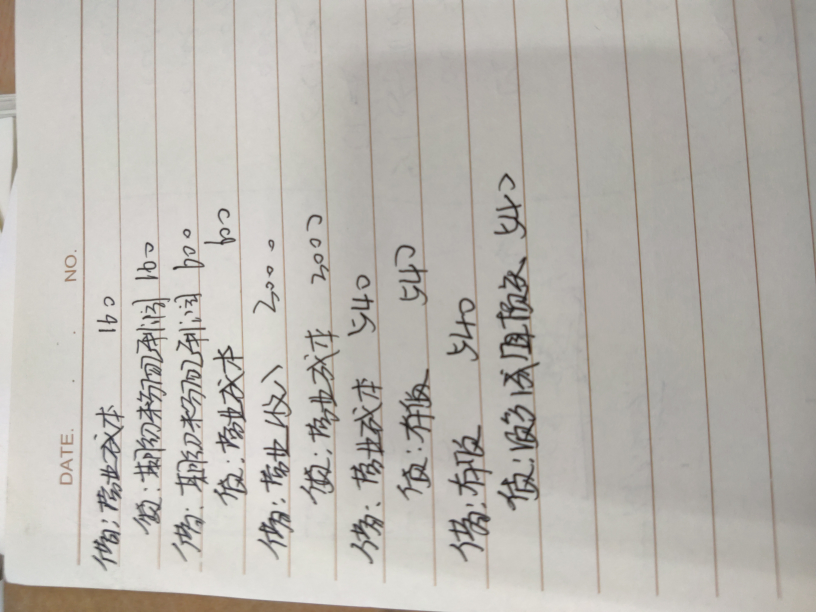 DATE. NO.
借:营业成本 160
贷:期初未分配利润 160
借:期初未分配利润 600
贷:营业成本 600
借:营业收入 2000
贷:营业成本 2000
借:营业成本 540
贷:存货 540
借:存货 540
贷:资产减值损失 540